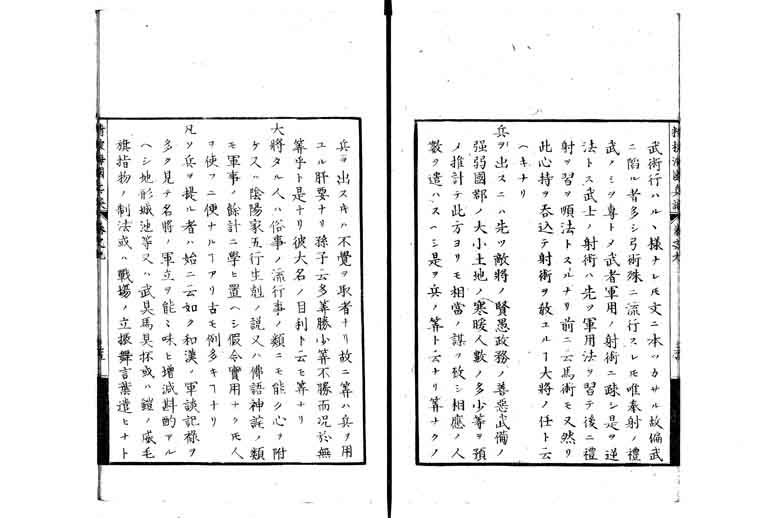 武術行ハルヽ樣ナレ𪜈文ニ本ツカサル故偏武
ニ陷ル者多シ弓術殊ニ流行スレ𪜈唯奉射ノ禮
武ノミヲ專トメ武者軍用ノ射術ニ疎シ是ヲ逆
法トス武士ノ射術ハ先ツ軍用法ヲ習テ後ニ禮
射ヲ習ヲ順法トスルナリ前ニ云馬術モ又然リ
此心持ヲ吞込テ射術ヲ敎ユルヿ大將ノ任ト云
ヘキナリ
兵ヲ出スニハ先ツ敵將ノ賢愚政務ノ善惡武備ノ
强弱國郡ノ大小土地ノ寒暖人數ノ多少等ヲ預
メ推計テ此方ヨリモ相當ノ謀ヲ致シ相應ノ人
數ヲ遣ハスヘシ是ヲ兵ノ筭ト云ナリ筭ナクノ
兵ヲ出スキハ不覺ヲ取者ナリ故ニ筭ハ兵ヲ用
ユル肝要ナリ孫子云多筭勝少筭不勝而况於無
筭乎ト是ナリ彼大名ノ目利ト云モ筭ナリ
大將タル人ハ俗事ノ流行事ノ類ニモ能ク心ヲ附
ケヌハ陰陽家五行生剋ノ説又ハ佛語神説ノ類
モ軍事ノ餘計ニ學ヒ置ヘシ假令實用ナク𪜈人
ヲ使フニ便ナルヿアリ古モ例多キヿナリ
凡ソ兵ヲ提ル者ハ始ニ云如ク和漢ノ軍談記祿ヲ
多ク見テ名將ノ軍立ヲ能ミ味ヒ增減斟酌アル
ヘシ地形城池等又ハ武具馬具抔或ハ鎧ノ威毛
旗指物ノ制法或ハ戰場ノ立振舞言葉遣ヒナト